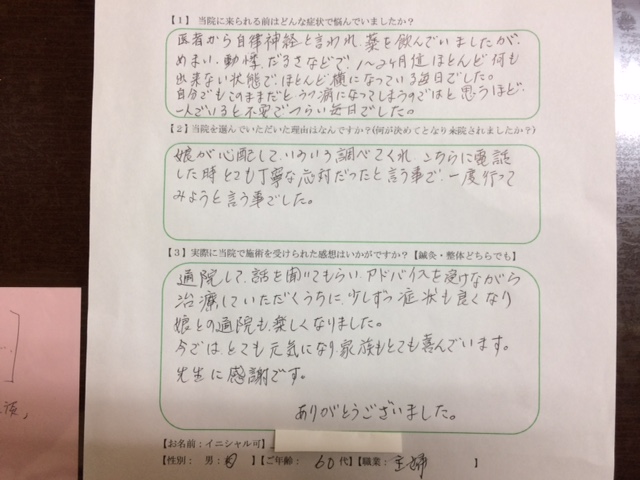 【1】 当院に来られる前はどんな症状で悩んでいましたか？
医者から自律神経と言われ、薬を飲んでいましたが、
めまい、動悸、だるさなどで、1〜2ヶ月位ほとんど何も
出来ない状態で、ほとんど横になっている毎日でした。
自分でもこのままだと、うつ病になってしまうのではと思うほど、
一人でいると不安でつらい毎日でした。
【2】当院を選んでいただいた理由はなんですか？(何が決めてとなり来院されましたか？)
娘が心配して、いろいろ調べてくれ、こちらに電話
した時とても丁寧な応対だったと言う事で、一度行って
みようと言う事でした。
【3】実際に当院で施術を受けられた感想はいかがですか？【鍼灸・整体どちらでも】
通院して、話を聞いてもらい、アドバイスを受けながら
治療していただくうちに、少しずつ症状も良くなり
娘との通院も、楽しくなりました。
今では、とても元気になり、家族もとても喜んでいます。
先生に感謝です。
ありがとうございました。
【お名前：イニシャル可】
【性別： 男： 】【ご年齢： 60代】【職業： 主婦 】